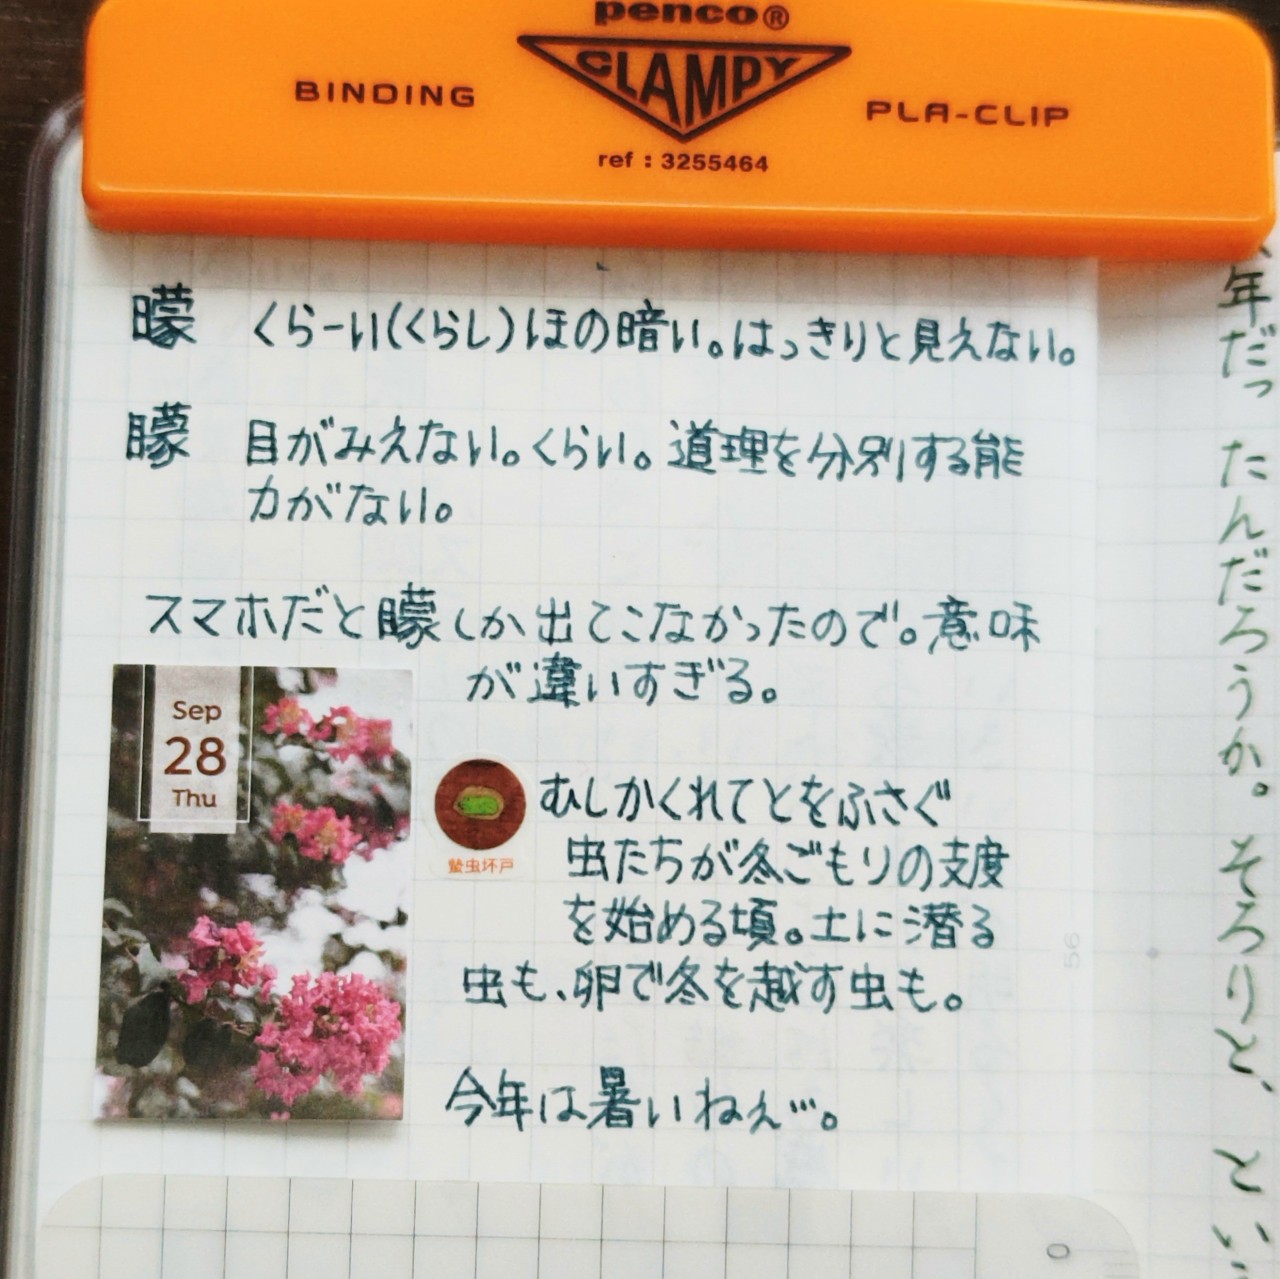 penco®
CLAMPY
BINDING
PLA-CLIP
ref : 3255464
曚 くらーい(くらし)ほの暗い。はっきりと見えない。
矇 目がみえない。くらい。道理を分別する能
力がない。
スマホだと矇しか出てこなかったので。意味
が違いすぎる。
Sep
28
Thu
蟄虫坏戸
むしかくれてとをふさぐ
虫たちが冬ごもりの支度
を始める頃。土に潜る
虫も、卵で冬を越す虫も。
今年は暑いねぇ…。
56
年だったんだろうか。そろりと、とい